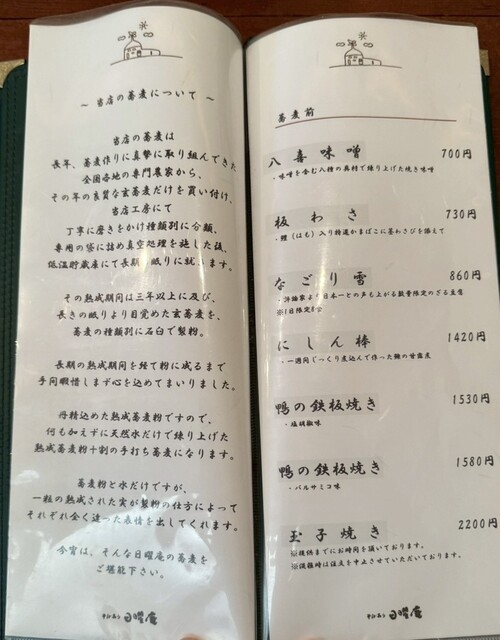 ～ 当店の蕎麦について ～
当店の蕎麦は
長年、蕎麦作りに真摯に取り組んできた
全国各地の専門農家から、
その年の良質な玄蕎麦だけを買い付け、
当店工房にて
丁寧に磨きをかけ種類別に分類、
専用の袋に詰め真空処理を施した後、
低温貯蔵庫にて長期 眠りに就きます。
その熟成期間は三年以上に及び、
長きの眠りより目覚めた玄蕎麦を、
蕎麦の種類別に石臼で製粉。
長期の熟成期間を経て粉に成るまで
手間暇惜しまず心を込めてまいりました。
丹精込めた熟成蕎麦粉ですので、
何も加えずに天然水だけで練り上げた
熟成蕎麦粉十割の手打ち蕎麦になります。
蕎麦粉と水だけですが、
一粒の熟成された実が製粉の仕方によって
それぞれ全く違った表情を出してくれます。
今宵は、そんな日曜庵の蕎麦を
ご堪能下さい。
日曜庵
蕎麦前
八喜味噌 700円
・味噌を含む八種の具材で練り上げた焼き味噌
板わさ 730円
・鱧（はも）入り特選かまぼこに茎わさびを添えて
なごり雪 860円
・評論家より日本一との声も上がる数量限定のざる豆腐
※1日限定8合
にしん棒 1420円
・一週間じっくり煮込んで作った鰊の甘露煮
鴨の鉄板焼き 1530円
・塩胡椒味
鴨の鉄板焼き 1580円
・バルサミコ味
玉子焼き 2200円
※提供までにお時間を頂いております。
※混雑時は注文を中止させていただいております。
日曜庵